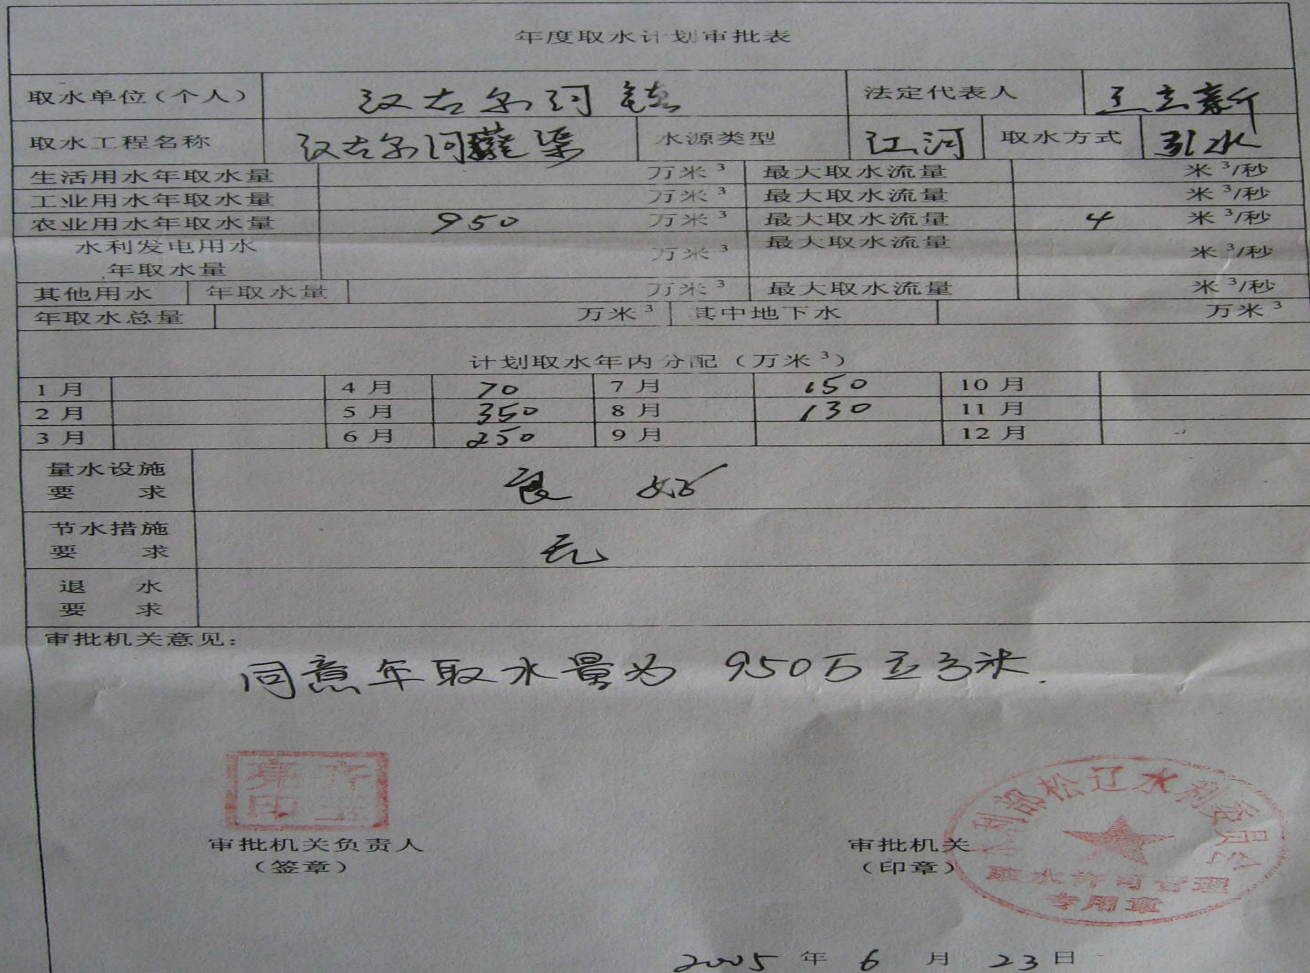 年度取水计划审批表
取水单位（个人） 汉古尔河镇 法定代表人 王立新
取水工程名称 汉古尔河灌渠 水源类型 江河 取水方式 引水
生活用水年取水量 万米³ 最大取水流量 米³/秒
工业用水年取水量 万米³ 最大取水流量 米³/秒
农业用水年取水量 950 万米³ 最大取水流量 4 米³/秒
水利发电用水 万米³ 最大取水流量 米³/秒
年取水量
其他用水 年取水量 万米³ 最大取水流量 米³/秒
年取水总量 万米³ 其中地下水 万米³
计划取水年内分配（万米³）
1月 4月 70 7月 150 10月
2月 5月 350 8月 130 11月
3月 6月 250 9月 12月
量水设施
要 求 良 好
节水措施
要 求 无
退 水
要 求
审批机关意见：
同意年取水量为 950万立方米.
水利部松辽水利委员会
取水许可管理
专用章
审批机关负责人 审批机关
（签章） （印章）
2005 年 6 月 23 日